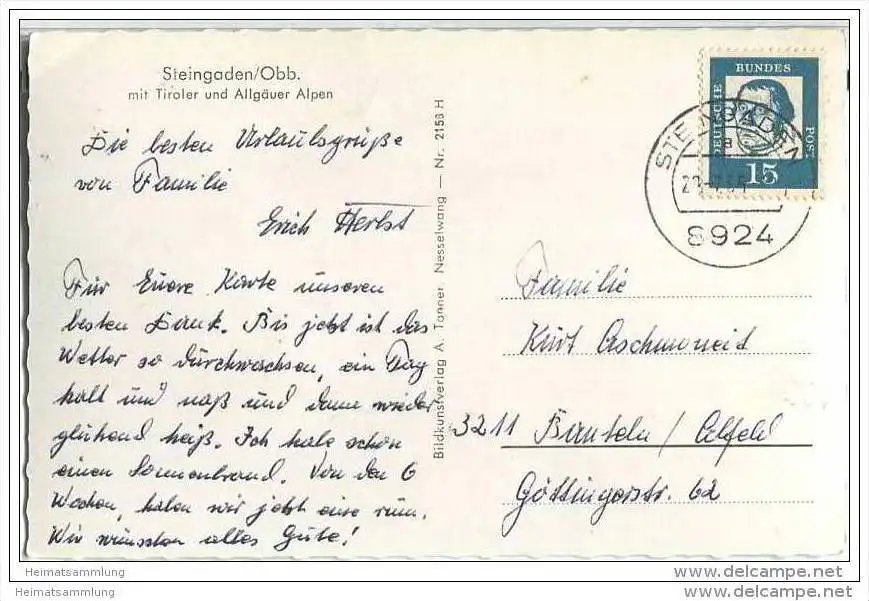 Steingaden/Obb.
mit Tiroler und Allgäuer Alpen
Die besten Urlaubsgrüße
von Familie
Erich Herbst
Für Euere Karte unseren
besten Dank. Bis jetzt ist das
Wetter so durchwachsen, ein Tag
kalt und naß und dann wieder
glühend heiß. Ich habe schon
einen Sonnenbrand. Von den 6
Wochen, haben wir jetzt eine rum.
Wir wünschen alles Gute!
Bildkunstverlag A. Tanner Nesselwang — Nr. 2158 H
DEUTSCHE
BUNDES
POST
15
STEINGADEN
a
8924
Familie
Kurt Aschmoneit
3211 Banteln / Alfeld
Göttingerstr. 62
Heimatsammlung
Heimatsammlung
www.delcampe.net
www.delcampe.net